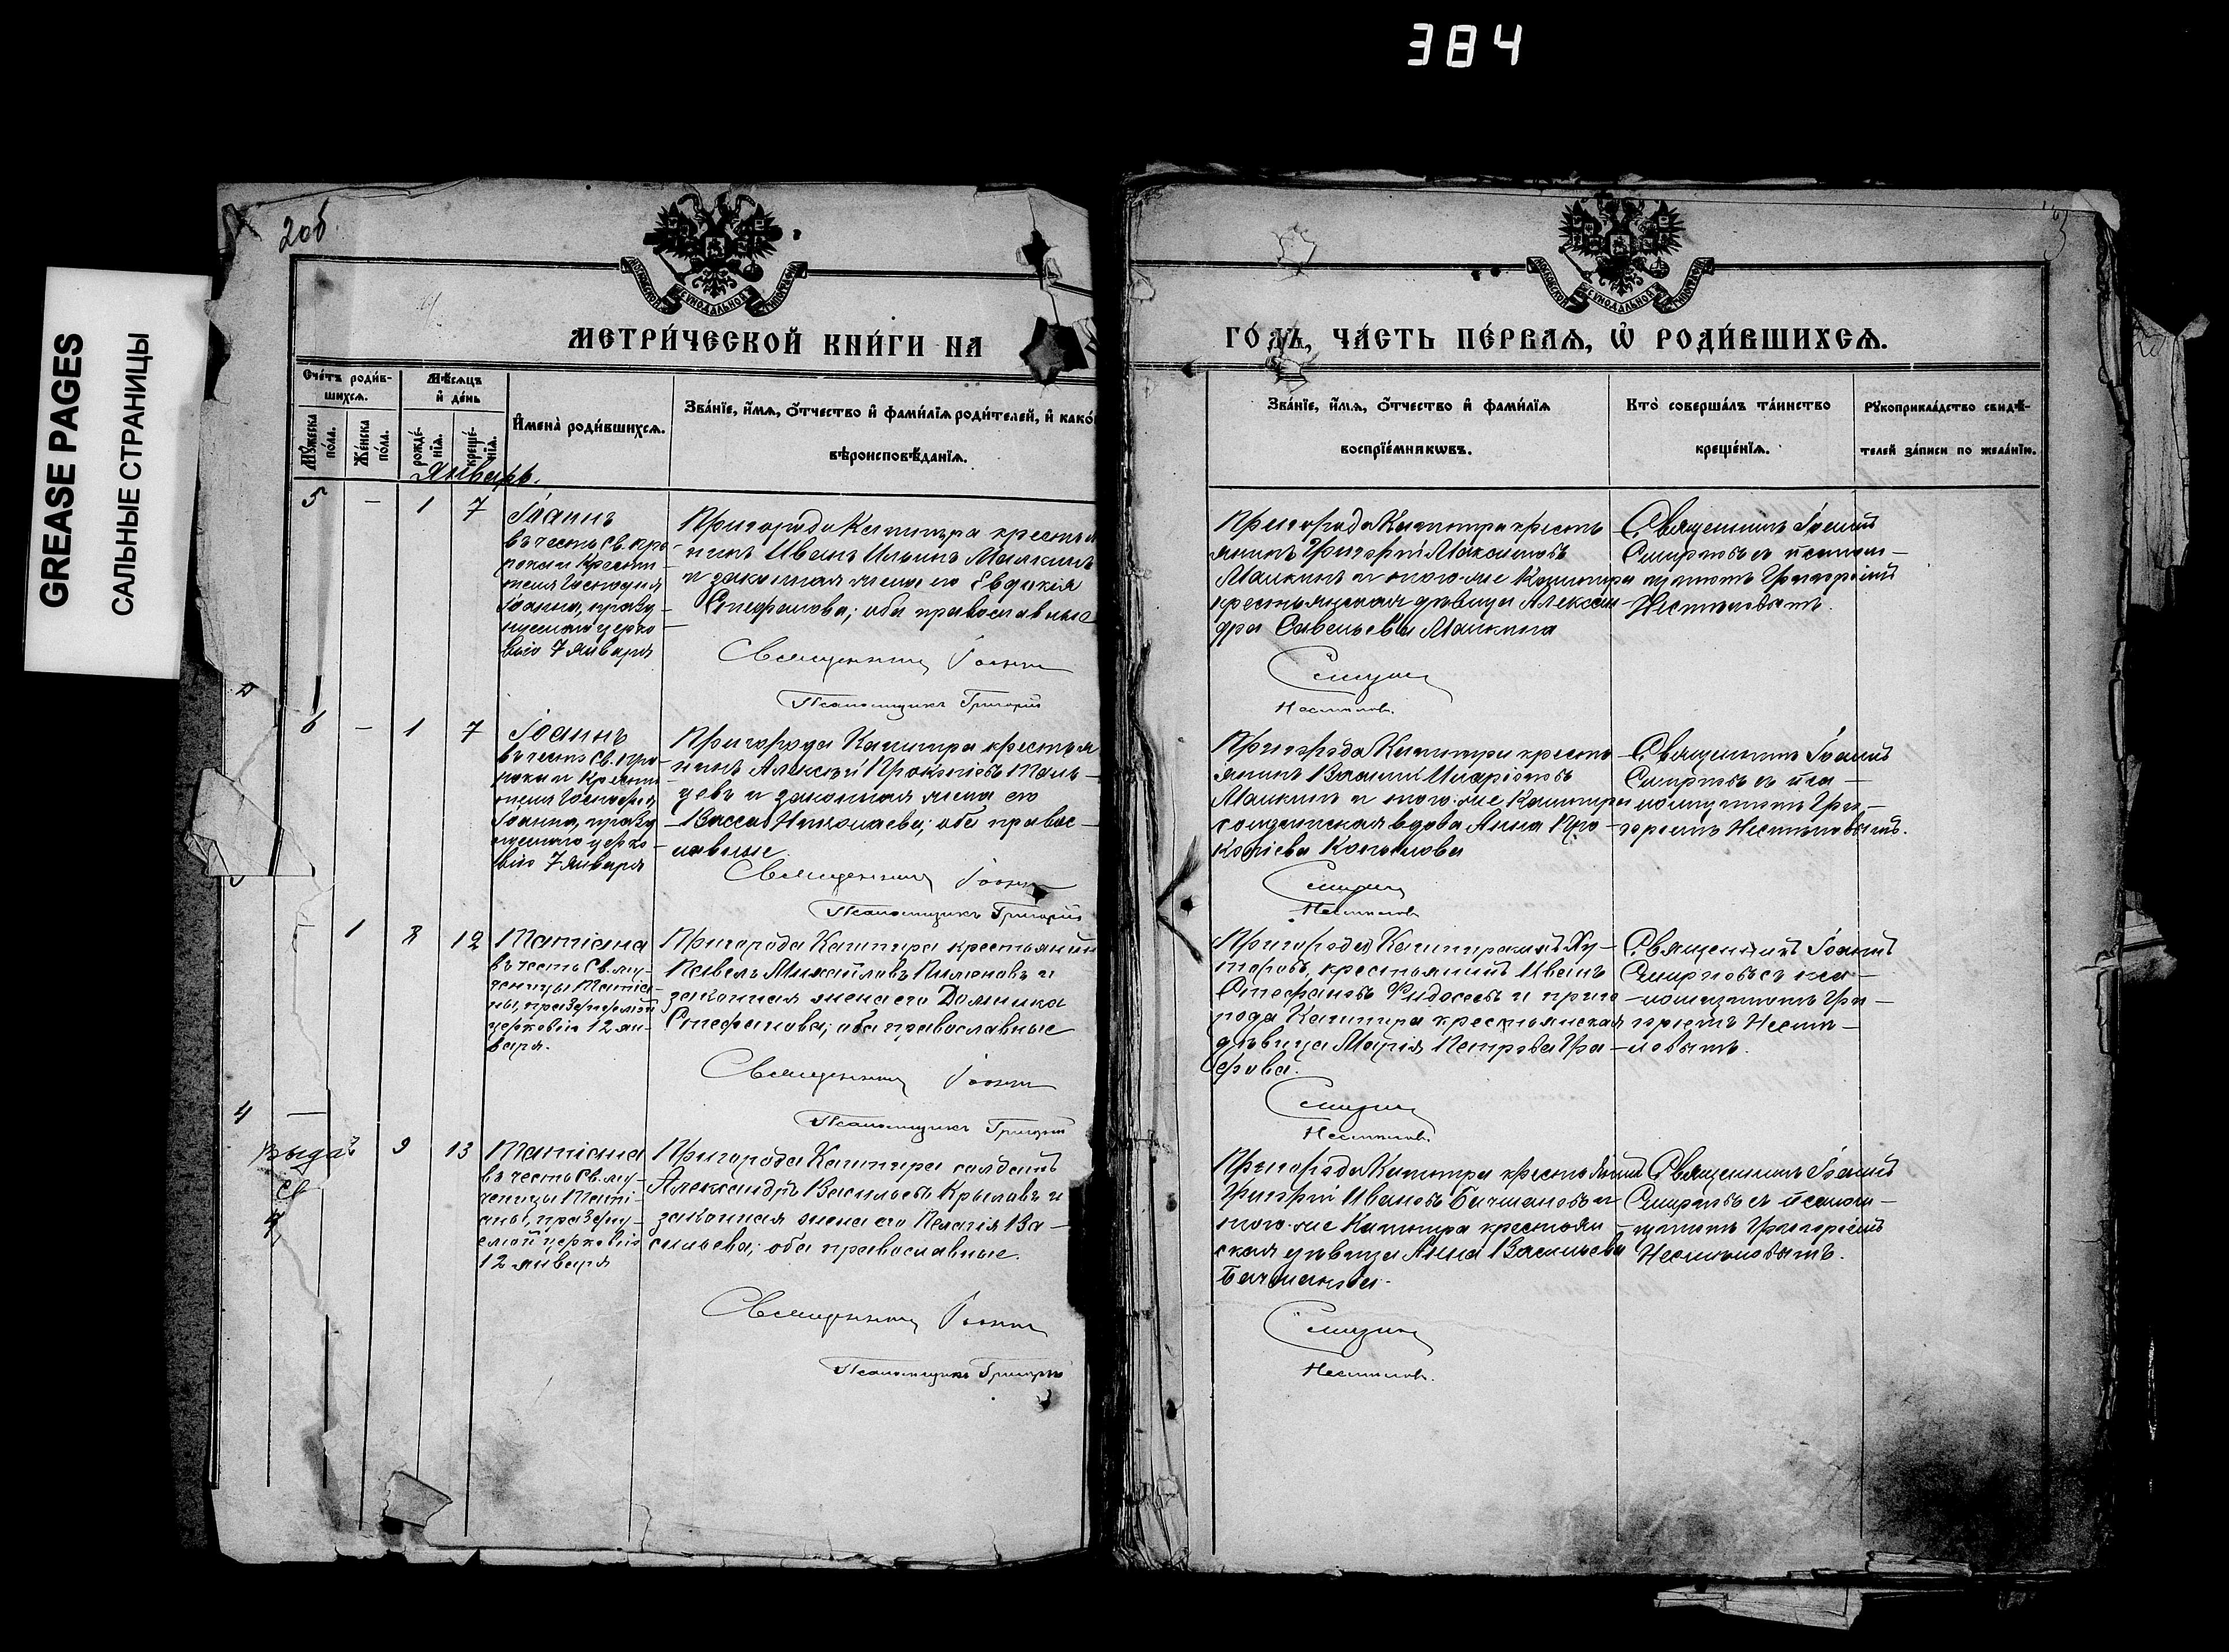 384
GREASE PAGES
САЛЬНЫЕ СТРАНИЦЫ
2об.
МОСКОВСКОЙ СУНОДАЛЬНОЙ ТИПОГРАФІИ
МЕТРИ́ЧЕСКОЙ КНИ́ГИ НА
Сче́тъ роди́в-
шихсѧ.
Мꙋ́жеска по́ла.
Же́нска по́ла.
Мѣ́сѧцъ
и҆ де́нь
рожде́-
нїѧ.
креще́-
нїѧ.
И҆мена̀ роди́вшихсѧ.
Зва́нїе, и҆́мѧ, ѻ҆́тчество и҆ фами́лїѧ роди́телей, и҆ како́
вѣроисповѣ́данїѧ.
Январь.
5 – 1 7
Іоаннъ
въ честь Св. про-
рока и Крести-
теля Господня
Іоанна, празд-
нуемаго церко-
вію 7 января
Пригорода Кашпира крестья
нинъ Иванъ Ильинъ Маикинъ
и законная жена его Евдокія
Стефанова; оба православные
Священникъ Іоаннъ
Псаломщикъ Григорій
6 – 1 7
Іоаннъ
въ честь Св. про-
рока и Крести
теля Господня
Іоанна, праздн
уемаго церко-
вію 7 января
Пригорода Кашпира крестья
нинъ Алексѣй Прокопіевъ
и законная жена его
Васса Николаева; оба правос-
лавные.
Священникъ Іоаннъ
Псаломщикъ Григорій
1 8 12
Татіана
въ честь Св. му-
ченицы Татіа-
ны, празднуемой
церковію 12 ян-
варя.
Пригорода Кашпира крестьянинъ
Павелъ Михайловъ Пилюновъ и
законная жена его Домника
Стефанова; оба православные
Священникъ Іоаннъ
Псаломщикъ Григорій
4 –
Выдан
св
9 13
Татіана
въ честь Св. му-
ченицы Таті-
аны, праздну-
емой церковію
12 января
Пригорода Кашпира солдатъ
Александръ Васильевъ Крыловъ и
законная жена его Пелагія Ва-
сильева; оба православные.
Священникъ Іоаннъ
Псаломщикъ Григорій
3
МОСКОВСКОЙ СУНОДАЛЬНОЙ ТИПОГРАФІИ
ГО́ДЪ, ЧА́СТЬ ПЕ́РВАѦ, Ѡ҆ РОДИ́ВШИХСѦ.
Зва́нїе, и҆́мѧ, ѻ҆́тчество и҆ фами́лїѧ
воспрїе́мникѡвъ.
Кто̀ соверша́лъ та́инство
креще́нїѧ.
Рꙋкоприкла́дство свидѣ́-
телей за́писи по жела́нїю.
Пригорода Кашпира кресть
янинъ Григорій Максимовъ
Маикинъ и того-же Кашпира
крестьянская дѣвица Алексан-
дра Савельева Маикина
Священникъ Іоаннъ
Смирновъ съ псалом-
щикомъ Григоріемъ
Нестеловымъ.
Смирновъ
Нестеловъ.
Пригорода Кашпира кресть
янинъ Василій Иларіоновъ
Маикинъ и того-же Кашпира
солдатская вдова Анна Про-
кофіева Копылова
Священникъ Іоаннъ
Смирновъ съ пса-
ломщикомъ Гри-
горіемъ Нестеловымъ.
Смирновъ
Нестеловъ
Пригорода Кашпирскихъ Ху-
торовъ, крестьянинъ Иванъ
Стефановъ Фидосеевъ и приго-
рода Кашпира крестьянская
дѣвица Марія Петрова Гра-
фова.
Священникъ Іоаннъ
Смирновъ съ пса-
ломщикомъ Гри-
горіемъ Несте-
ловымъ.
Смирновъ
Нестеловъ
Пригорода Кашпира крестьянинъ
Григорій Ивановъ Бичмановъ и
того-же Кашпира крестьян-
ская дѣвица Анна Васильева
Бичманова.
Священникъ Іоаннъ
Смирновъ съ псалом-
щикомъ Григоріемъ
Нестеловымъ.
Смирновъ
Нестеловъ.